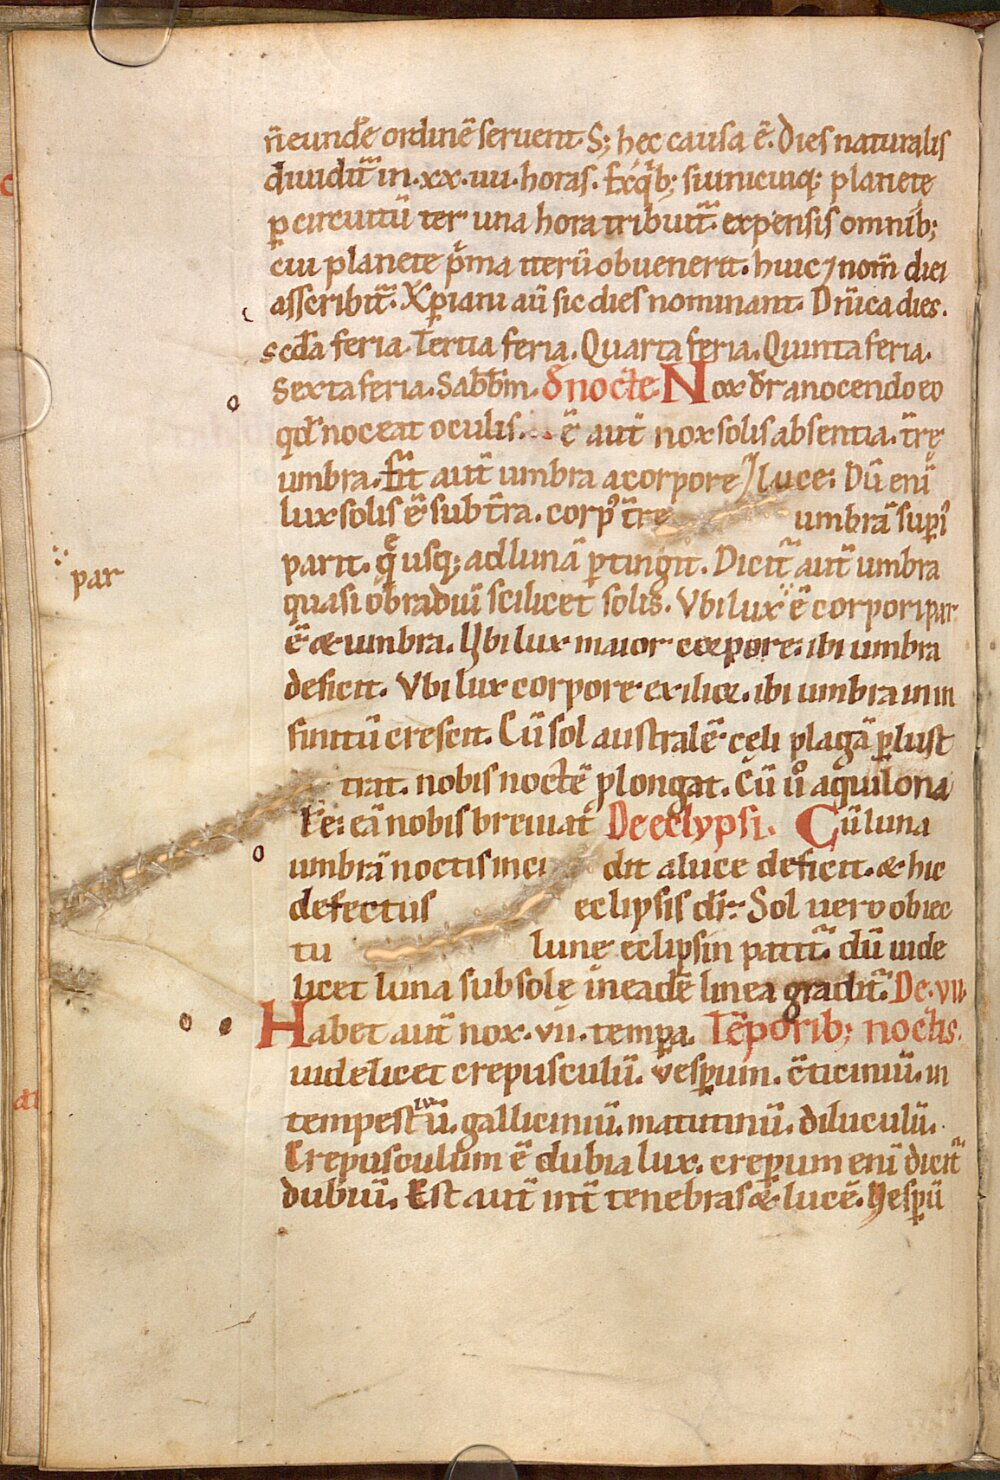 n̄ eundē ordinē seruent. S; hec causa ē. Dies naturalis
diuidit᷑ in .xx.iiii. horas. Ex qͥb; si unicuiq; planetę
ꝑ circuitū ter una hora tribuit᷑. expensis omnib;
cui planetę pͥma iterū obuenerit. huic ⁊ nom̄ diei
asscribit᷑. Xp̄iani aū sic dies nominant. Dn̄ica dies.
scd̄a feria. Tertia feria. Quarta feria. Quinta feria.
Sexta feria. Sabbm̄. đ nocte. Nox dr̄ a nocendo eo
qd̄ noceat oculis. ē aut̄ nox solis absentia. tr̄ę
umbra. fit aut̄ umbra a corpore ⁊ luce. Dū eni
lux solis ē sub tr̄a. corpꝰ tr̄ę umbrā supͥ
parit. q̄ usq; ad lunā ꝑtingit. Dicit᷑ aut̄ umbra
par
quasi obradiū scilicet solis. Vbi lux ē corpori par
ē & umbra. Vbi lux maior corpore. ibi umbra
deficit. Vbi lux corpore exilior. ibi umbra in in
finitū crescit. Cū sol australē cęli plagā ꝑlust
trat. nobis noctē plongat. Cū u̾o aquilona
le: eā nobis breuiat᷑ De eclypsi. Cū luna
umbrā noctis inci dit a luce deficit. & hic
defectus eclipsis dr̄. Sol uero obiec
tu lunę eclipsin patit᷑. dū uide
licet luna sub sole in eadē linea gradit᷑. De .vii.
Habet aut̄ nox .vii. tempa. Tēporib; noctis.
uidelicet crepusculū. vesꝑum. cticiniū. in
tempestiuū. gallicinu. matutinū. diluculū.
Crepusculum ē dubia lux. creꝑum eni dicit᷑
dubiū. Est aut̄ int̄ tenebras & lucē. Vesꝑū